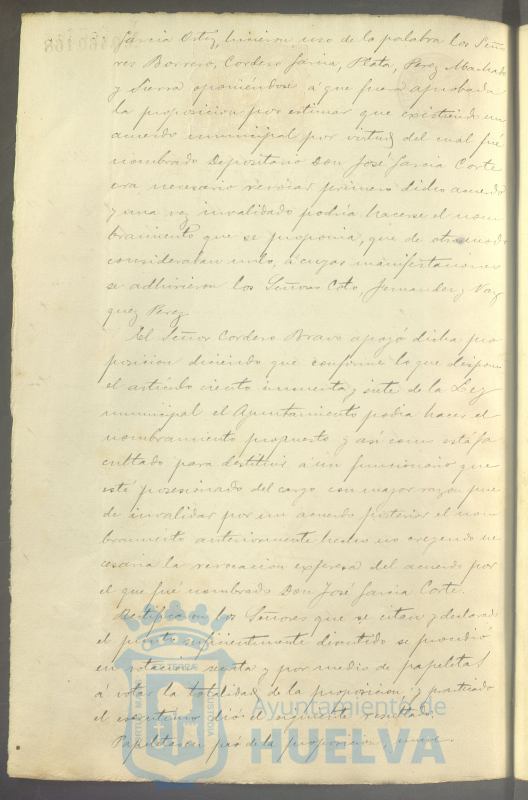 García Ortiz, hicieron uso de la palabra los Seño
res Borrero, Cordero García, Plata, Perez Machado
y Sierra oponiéndose á que fuera aprobada
la proposicion por estimar que existiendo un
acuerdo municipal por virtud del cual fué
nombrado Depositario Don José García Corte
era necesario revocar primero dicho acuerdo
y una vez invalidado podria hacerse el nom
bramiento que se proponia, que de otro modo
consideraban nulo, á cuyas manifestaciones
se adhirieron los Señores Coto, Fernandez y Vaz
quez Perez.
El Señor Cordero Bravo apoyó dicha pro
posicion diciendo que conforme lo que dispone
el artículo ciento cincuenta y siete de la Ley
municipal el Ayuntamiento podia hacer el
nombramiento propuesto y así como está fa
cultado para destituir á un funcionario que
esté posesionado del cargo con mayor razon pue
de invalidar por un acuerdo posterior el nom
bramiento anteriormente hecho no creyendo ne
cesaria la revocacion expresa del acuerdo por
el que fué nombrado Don José García Corte.
Rectificaron los Señores que se citan y declarado
el punto suficientemente discutido se procedió
en votacion secreta y por medio de papeletas
á votar la totalidad de la proposicion y practicado
el escrutinio dió el siguiente resultado.
Papeletas en pró de la proposicion,
Ayuntamiento de
HUELVA